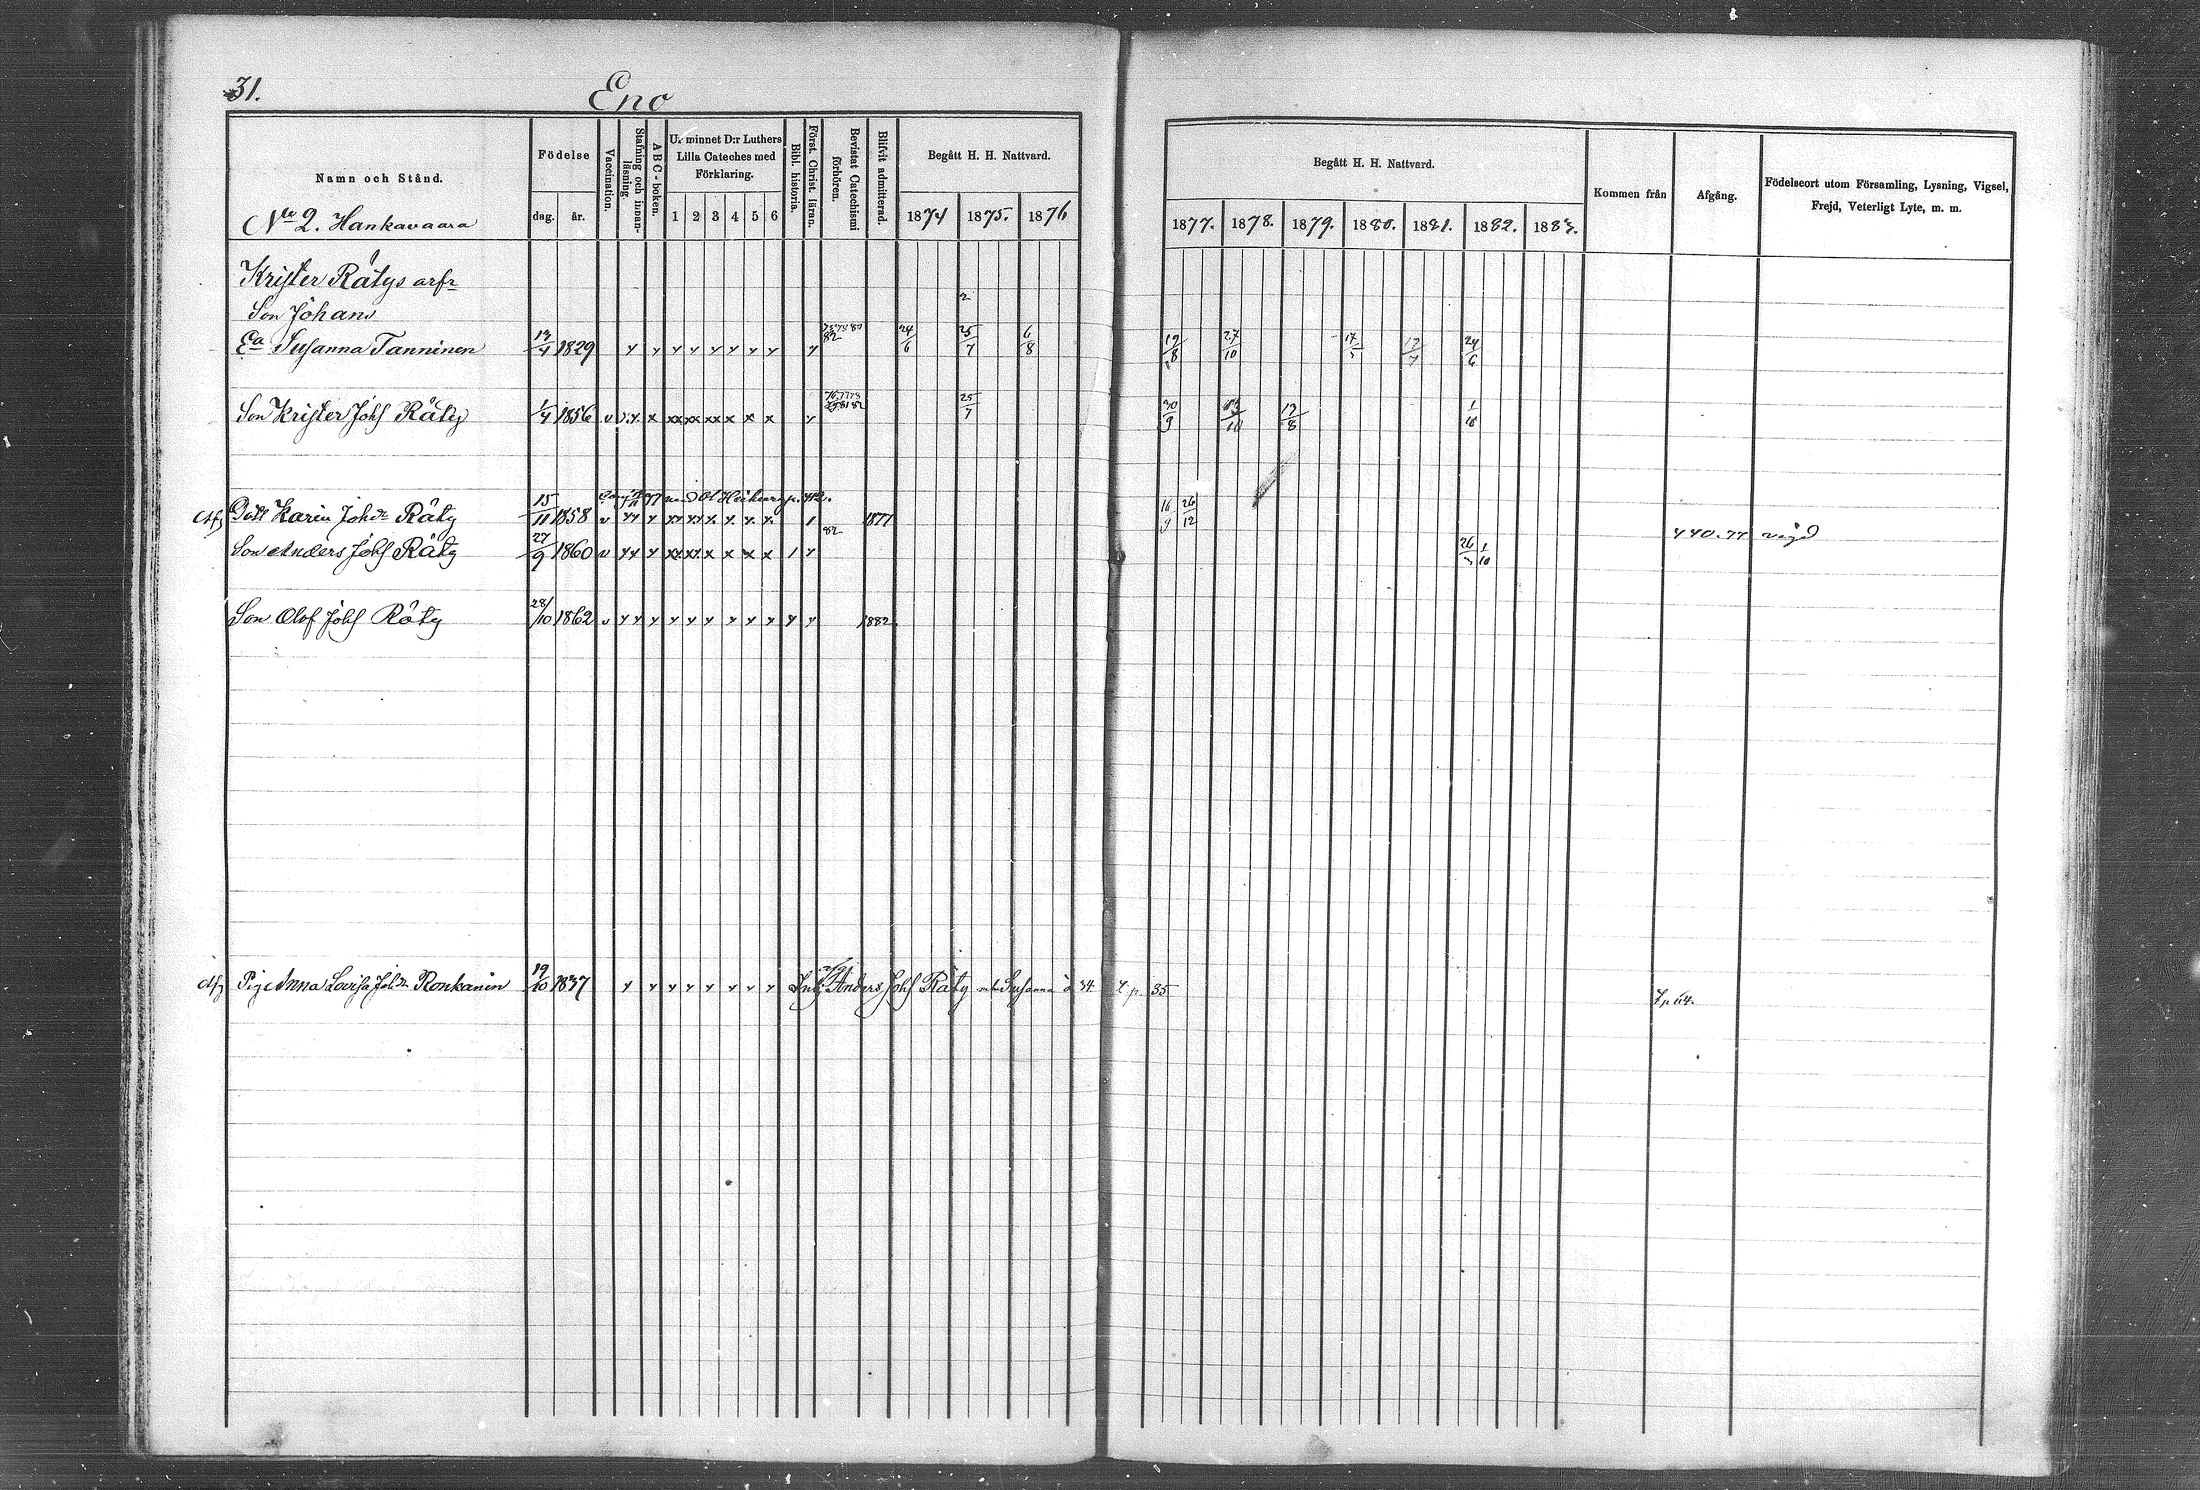 31.
Eno
Namn och Stånd.
Födelse
dag. år.
Vaccination.
Stafning och innan-läsning.
ABC-boken.
Ur minnet D:r Luthers Lilla Cateches med Förklaring.
1 2 3 4 5 6
Bibl. historia.
Först. Christ. läran.
Bevistat Catechismi förhören.
Blifvit admitterad.
Begått H. H. Nattvard.
1874 1875. 1876
Begått H. H. Nattvard.
1877. 1878. 1879. 1880. 1881. 1882. 1883.
Kommen från
Afgång.
Födelseort utom Församling, Lysning, Vigsel, Frejd, Veterligt Lyte, m. m.
No 2. Hankavaara
Krister Rätys arfr
Son Johans
Ea Susanna Tanninen 13/4 1829 82 24/6 25/7 6/8 19/8 27/10 17 13/7 24/6
Son Krister Johs Räty 1/4 1856 25/7 30/9 13/10 13/8 1/10
Dott Karin Johdr Räty 15/11 1858 1877 16/9 26/12 440.77 vigd
Son Anders Johs Räty 27/9 1860 82 26 1/10
Son Olof Johs Räty 28/10 1862 1882
Afg Pig Anna Lovisa Johdr Ronkanen 19/10 1837 Anders Johs Räty Susanna å 34 p 35